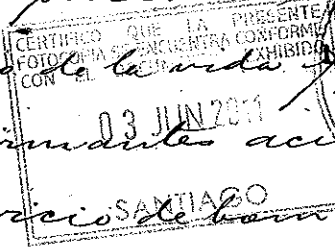 CERTIFICO QUE LA PRESENTE
FOTOCOPIA SE ENCUENTRA CONFORME
CON EL EXHIBIDO
o de la vida
03 JUN 2011
aci
SANTIAGO
icio de bom